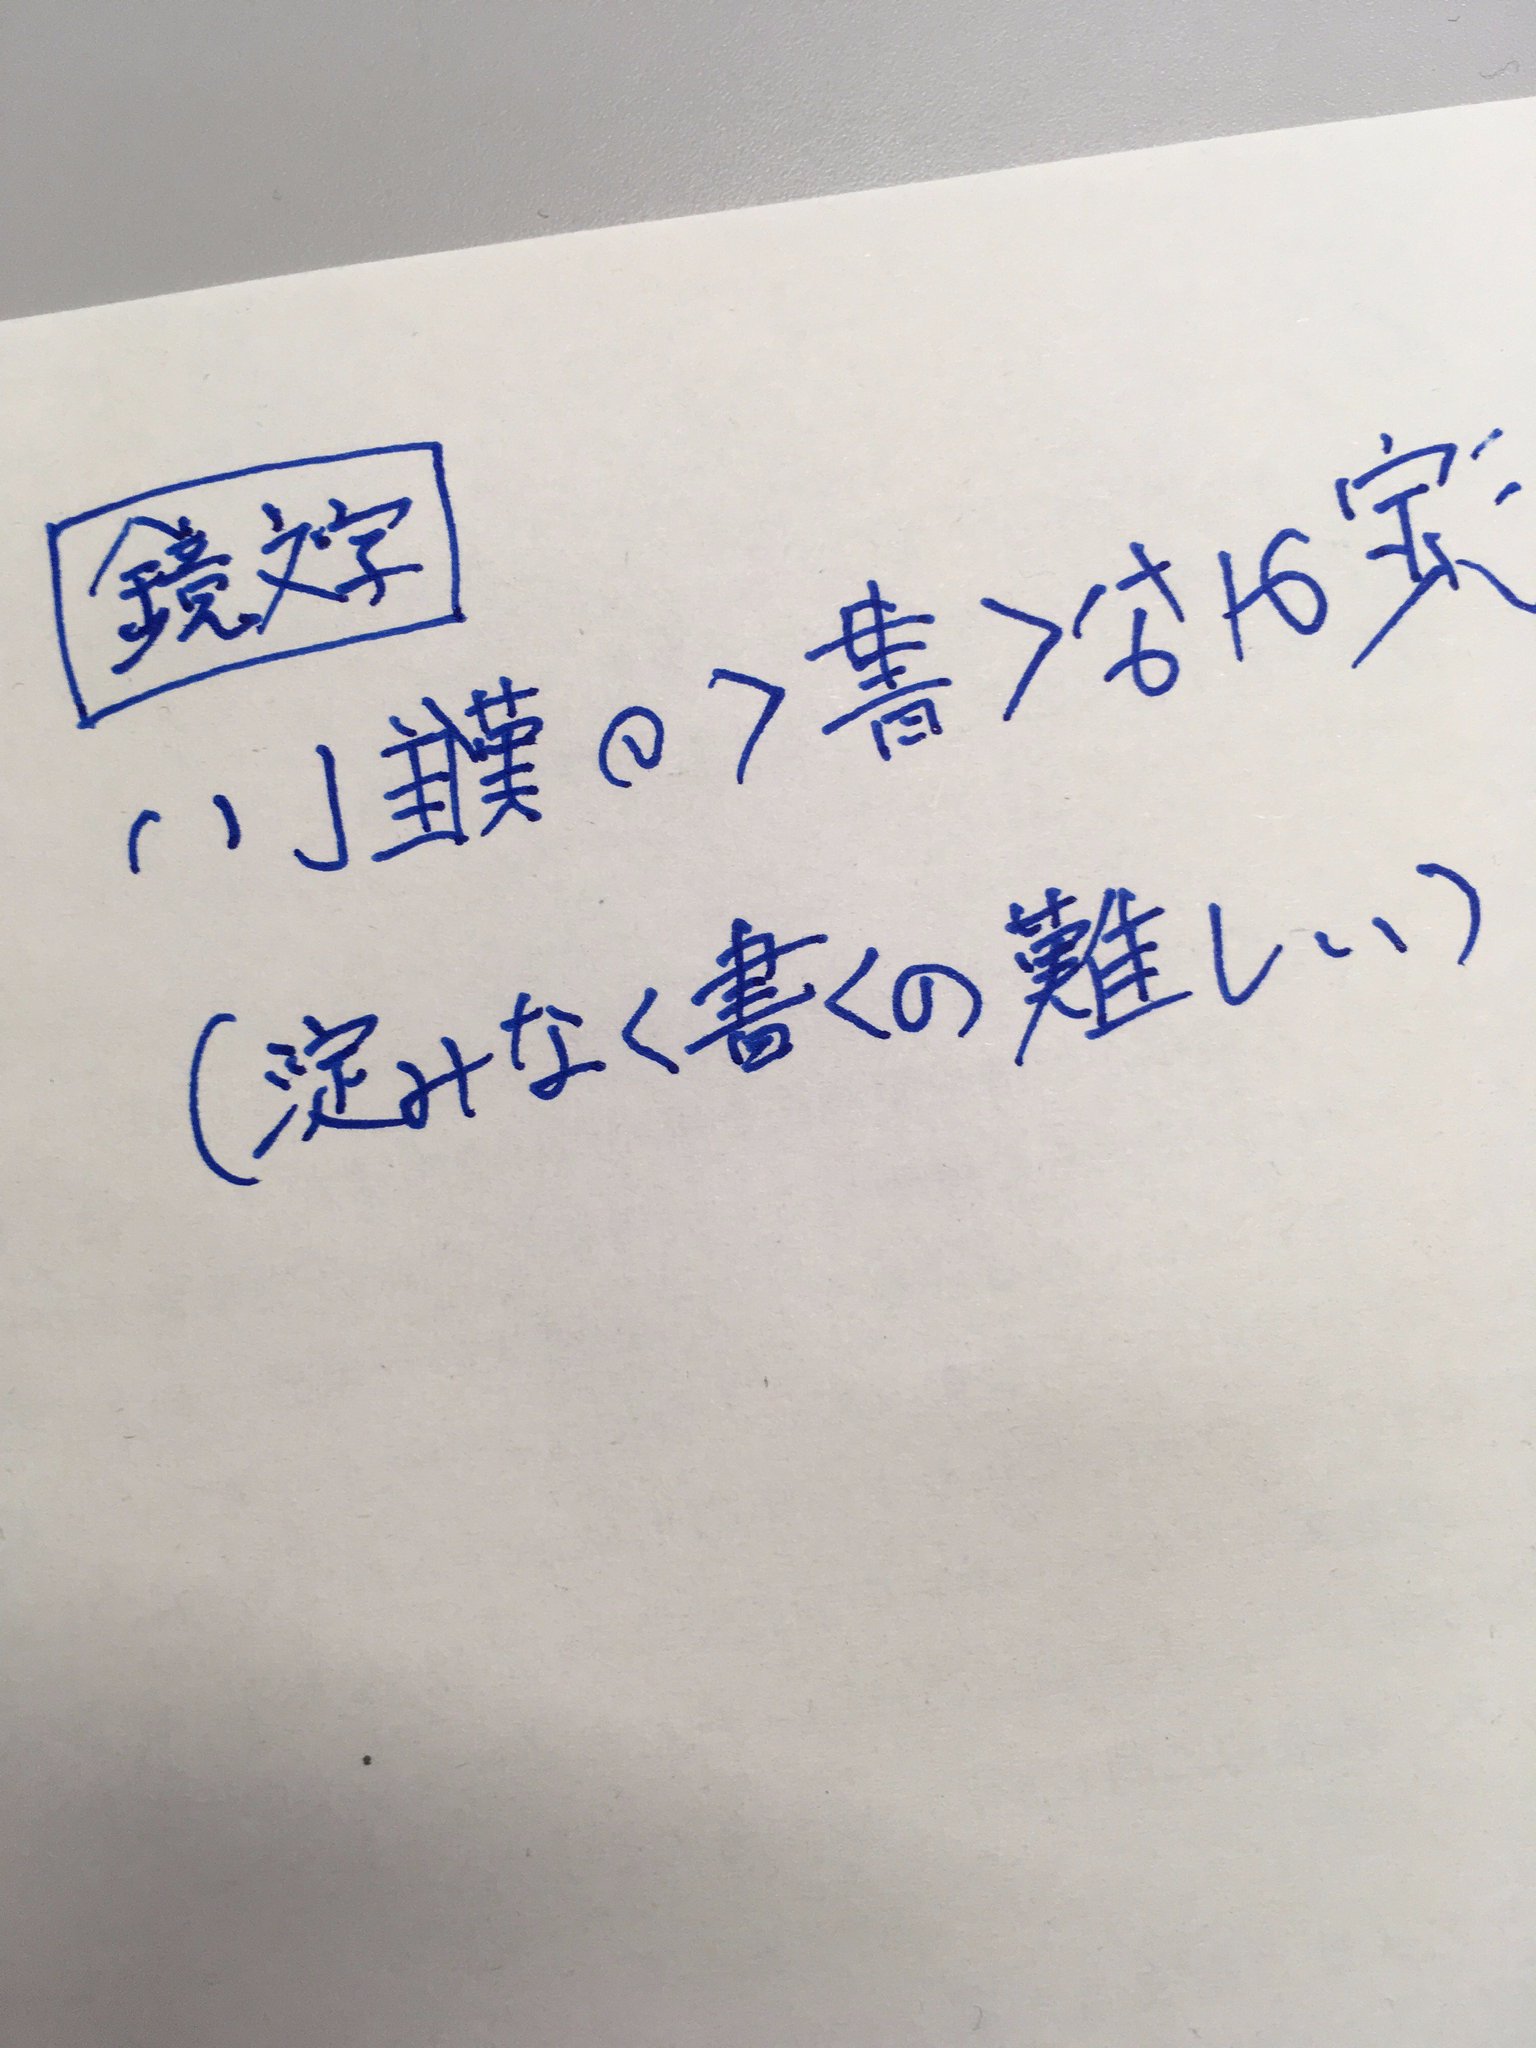 鏡文字
淀みなく書くの難しい
(淀みなく書くの難しい)